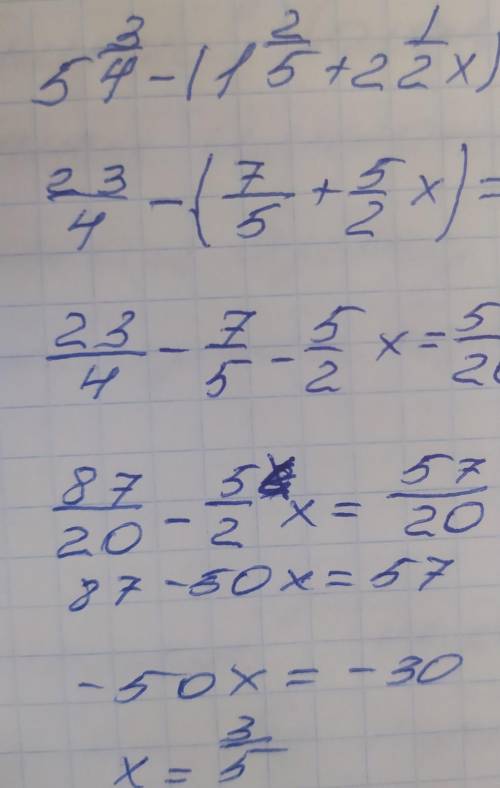 5 3/4 - (1 2/5 + 2 1/2 x)
23/4 - (7/5 + 5/2 x) =
23/4 - 7/5 - 5/2 x = 5/20
87/20 - 5/2 x = 57/20
87 - 50x = 57
-50x = -30
x = 3/5